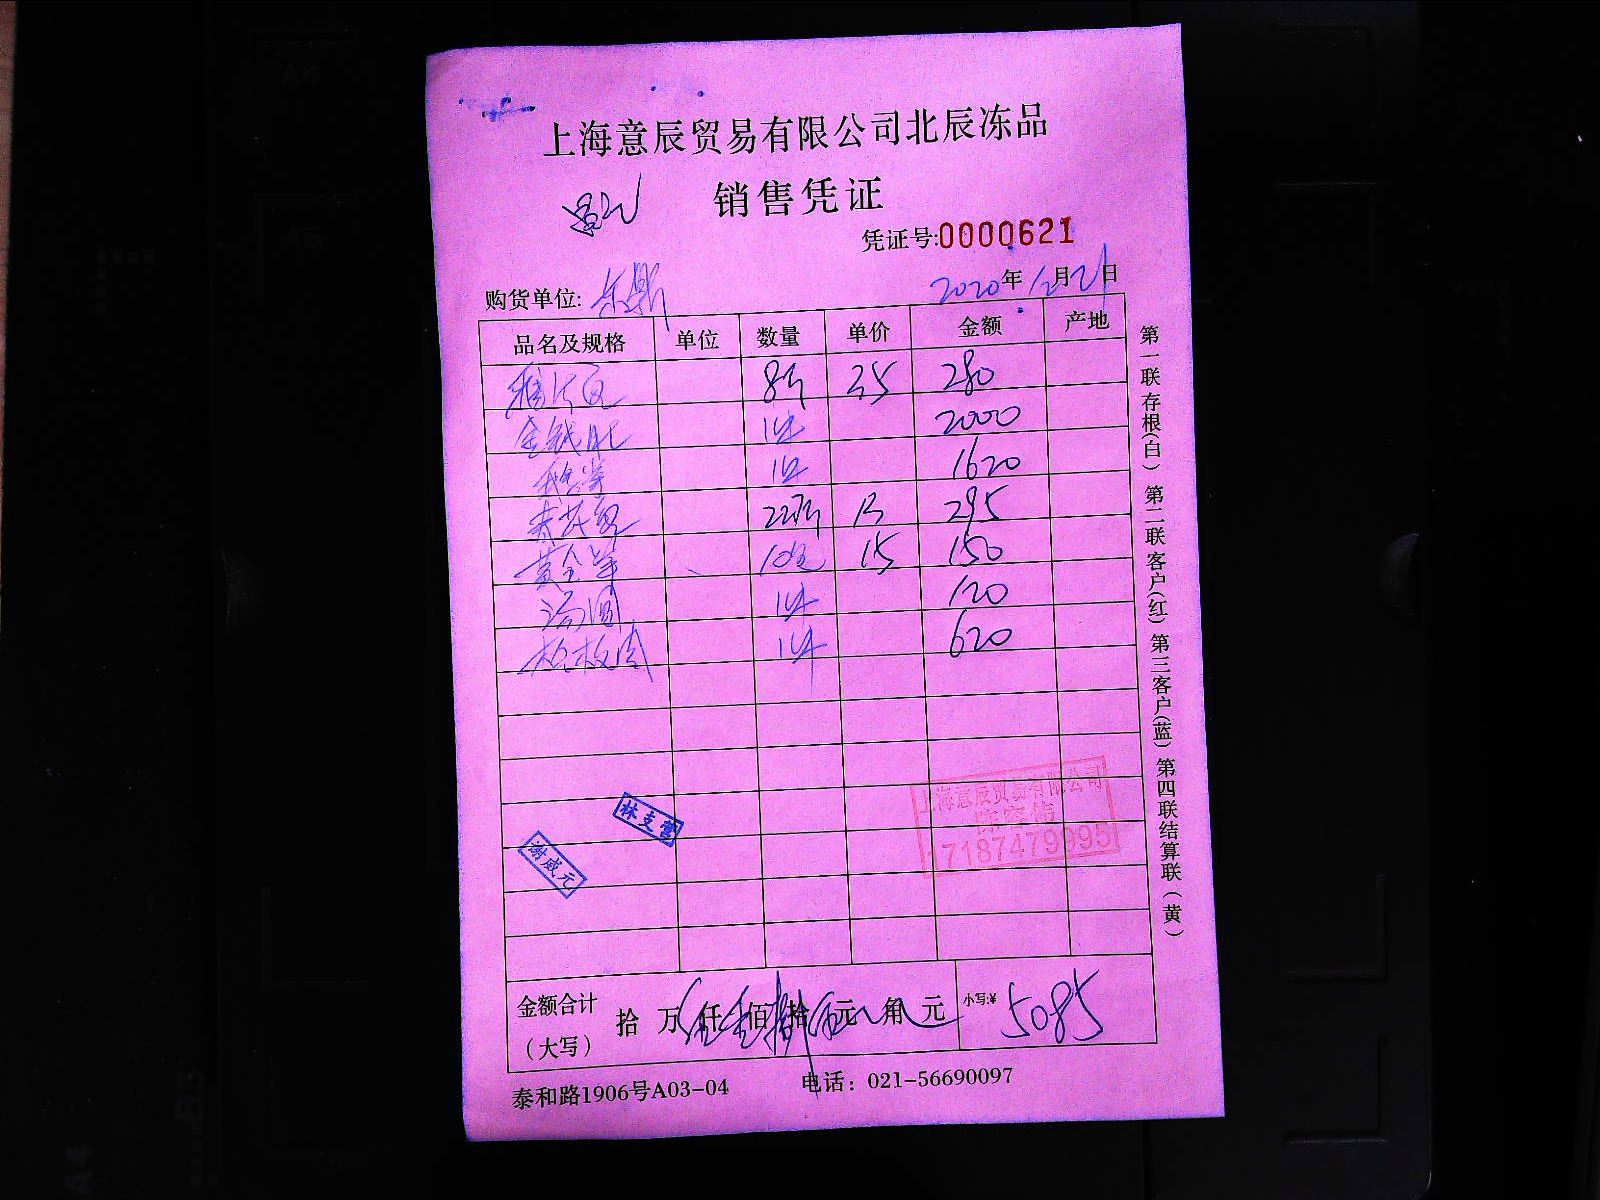 上海意辰贸易有限公司北辰冻品
销售凭证
凭证号:0000621
购货单位: 乐鼎 2020年12月21日
品名及规格 单位 数量 单价 金额 产地
8斤 35 280
金钱肚 1件 2000
1件 1620
295
黄金 10包 15 150
汤圆 1件 120
松板肉 1件 620
林支营
谢威元
上海意辰贸易有限公司
陈容伟
17187479995
金额合计(大写) 拾 万 伍 仟 零 佰 捌 拾 伍 元 角 元 小写:¥ 5085
泰和路1906号A03-04 电话: 021-56690097
第一联存根(白) 第二联客户(红) 第三客户(蓝) 第四联结算联(黄)